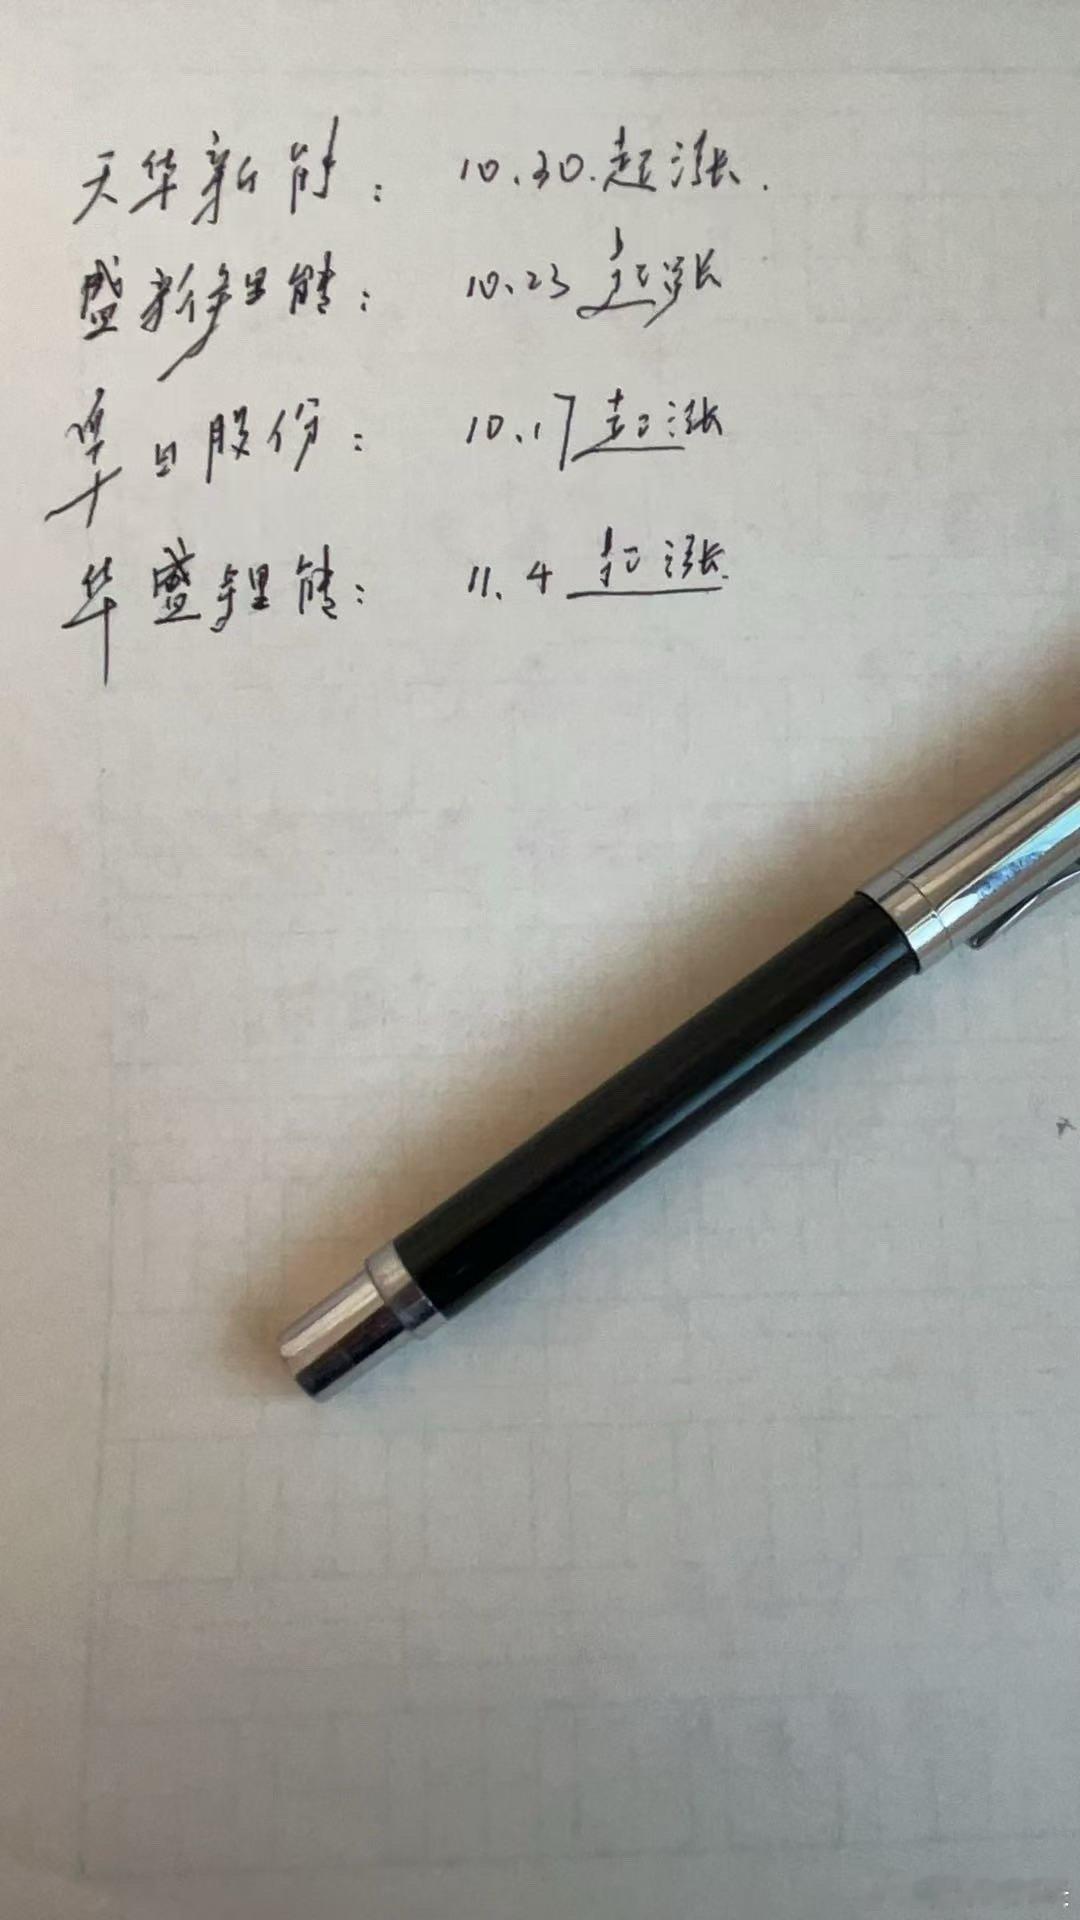 天华新能：10.30.起涨.
盛新锂能：10.23起涨
日股份：10.17起涨
华盛锂能：11.4起涨.